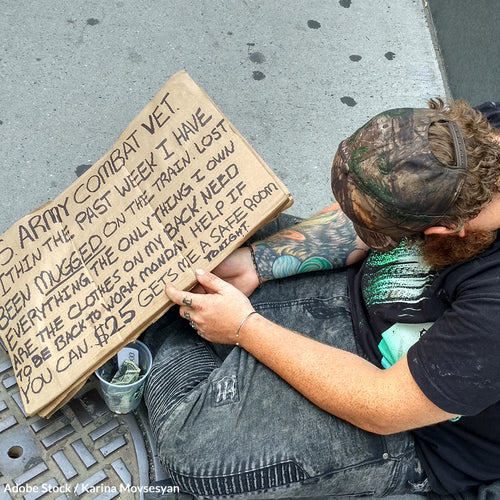 O ARMY COMBAT VET.
ITHIN THE PAST WEEK I HAVE
BEEN MUGGED ON THE TRAIN. LOST
EVERYTHING THE ONLY THING I OWN
ARE THE CLOTHES ON MY BACK NEED
TO BE BACK TO WORK MONDAY. HELP IF
YOU CAN. $25 GETS ME A SAFE ROOM
TONIGHT.
Adobe Stock / Karina Movsesyan